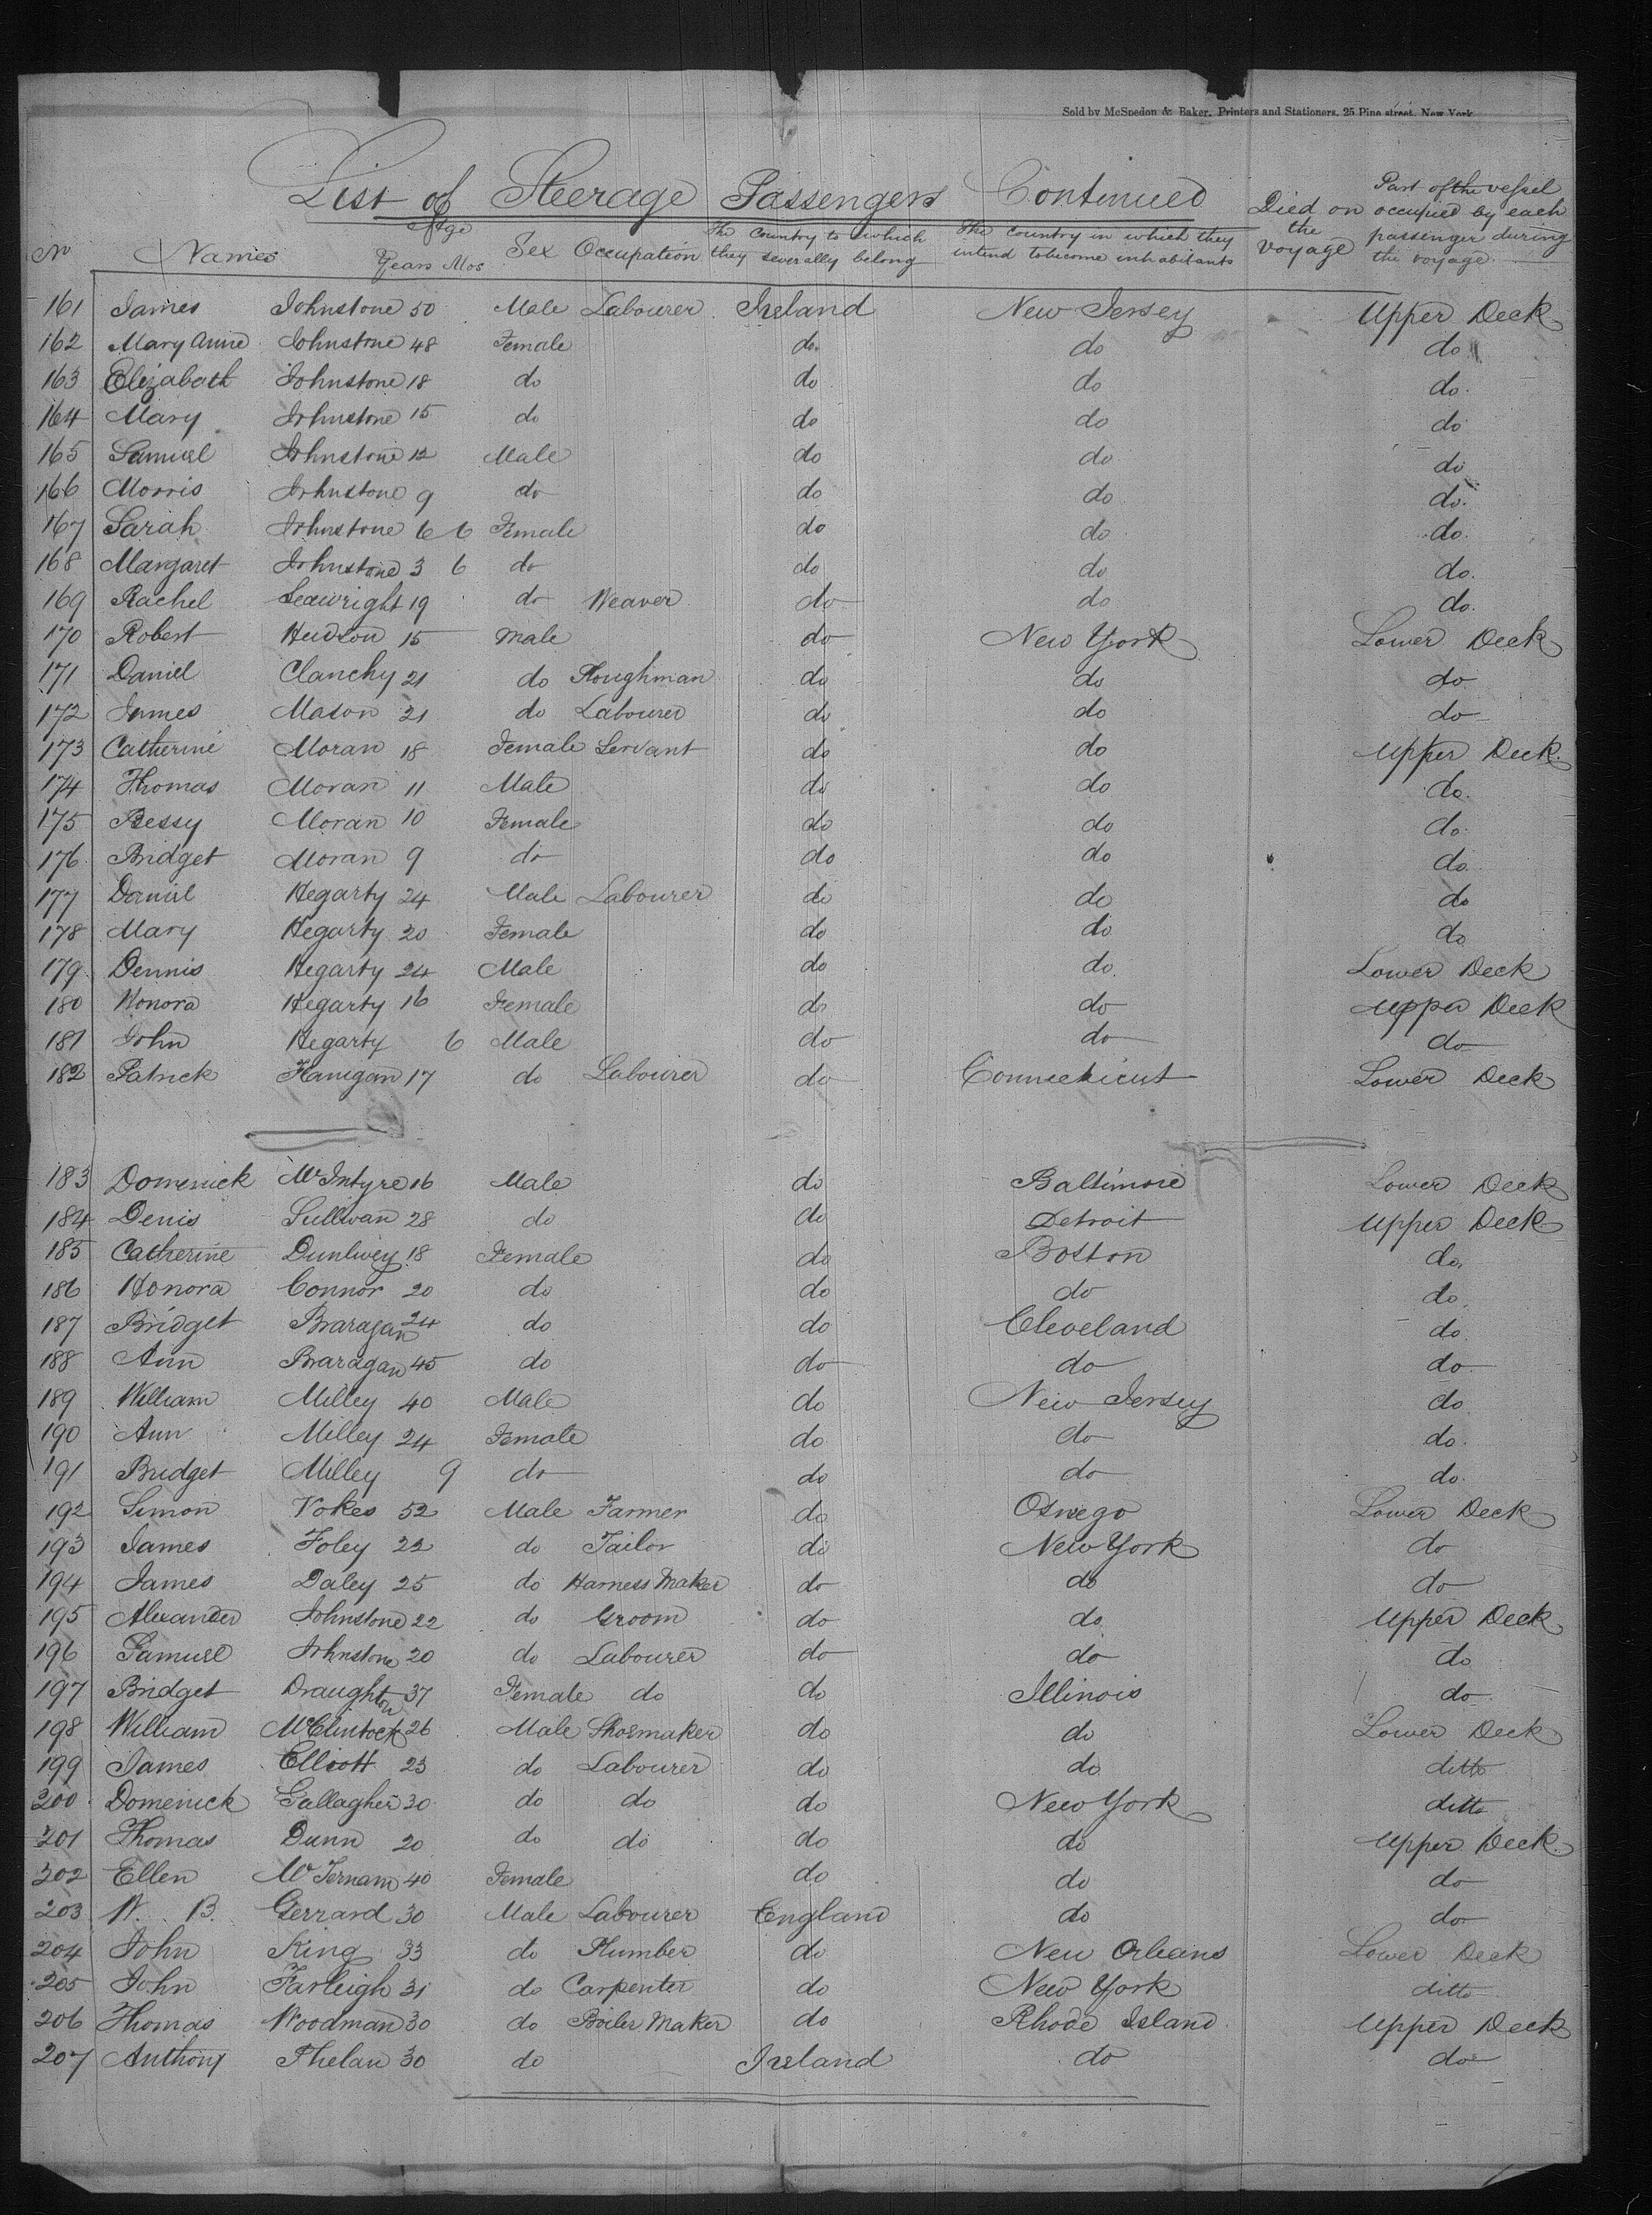 Sold by McSpedon & Baker, Printers and Stationers, 25 Pine street, New York
List of Steerage Passengers Continued
No Names Age Years Mos Sex Occupation The Country to which they severally belong The Country in which they intend to become inhabitants Died on the Voyage Part of the vessel occupied by each passenger during the voyage
161 James Johnstone 50 Male Labourer Ireland New Jersey Upper Deck
162 Mary Anne Johnstone 48 Female do do do
163 Elizabath Johnstone 18 do do do do
164 Mary Johnstone 15 do do do do
165 Samuel Johnstone 12 Male do do do
166 Morris Johnstone 9 do do do do
167 Sarah Johnstone 6 6 Female do do do
168 Margaret Johnstone 3 6 do do do do
169 Rachel Seawright 19 do Weaver do do do
170 Robert Hudson 15 Male do New York Lower Deck
171 Daniel Clanchy 21 do Ploughman do do do
172 James Mason 21 do Labourer do do do
173 Catherine Moran 18 Female Servant do do Upper Deck
174 Thomas Moran 11 Male do do do
175 Bessy Moran 10 Female do do do
176 Bridget Moran 9 do do do do
177 Daniel Hegarty 24 Male Labourer do do do
178 Mary Hegarty 20 Female do do do
179 Dennis Hegarty 24 Male do do Lower Deck
180 Honora Hegarty 16 Female do do Upper Deck
181 John Hegarty 6 Male do do do
182 Patrick Flanigan 17 do Labourer do Connecticut Lower Deck
183 Domenick McIntyre 16 Male do Baltimore Lower Deck
184 Denis Sullivan 28 do do Detroit Upper Deck
185 Catherine Dunlivey 18 Female do Boston do
186 Honora Connor 20 do do do do
187 Bridget Braragan 24 do do Cleveland do
188 Ann Braragan 45 do do do do
189 William Milley 40 Male do New Jersey do
190 Ann Milley 24 Female do do do
191 Bridget Milley 9 do do do do
192 Simon Vokes 52 Male Farmer do Oswego Lower Deck
193 James Foley 22 do Tailor do New York do
194 James Daley 25 do Harness Maker do do do
195 Alexander Johnstone 22 do Groom do do Upper Deck
196 Samuel Johnstone 20 do Labourer do do do
197 Bridget Draughton 37 Female do do Illinois do
198 William McClintock 26 Male Shoemaker do do Lower Deck
199 James Elliott 23 do Labourer do do ditto
200 Domenick Gallagher 30 do do do New York ditto
201 Thomas Dunn 20 do do do do Upper Deck
202 Ellen McTernam 40 Female do do do
203 W. B. Gerrard 30 Male Labourer England do do
204 John King 33 do Plumber do New Orleans Lower Deck
205 John Farleigh 31 do Carpenter do New York ditto
206 Thomas Woodman 30 do Boiler Maker do Rhode Island Upper Deck
207 Anthony Phelan 30 do Ireland do do